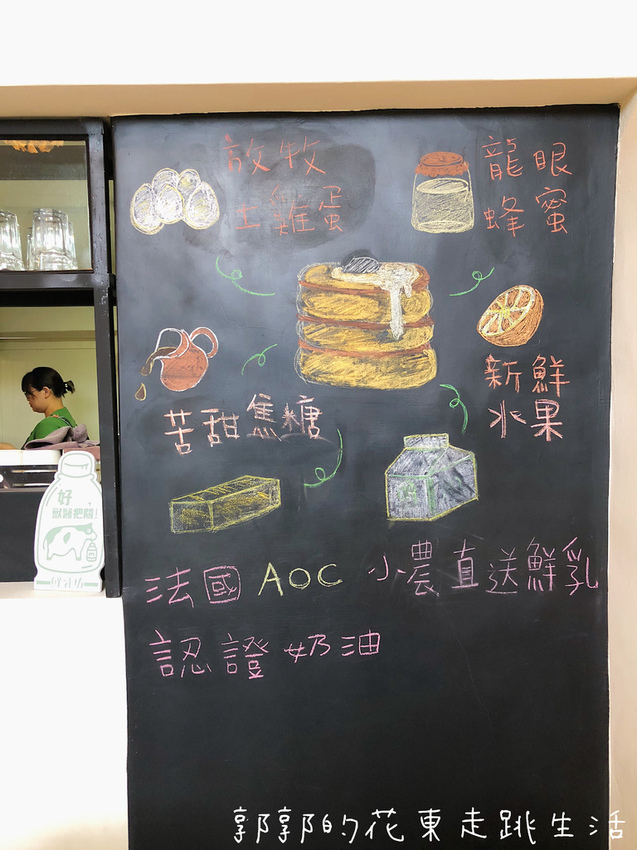 放牧
土雞蛋
龍眼
蜂蜜
新鮮
水果
苦甜焦糖
好
獸醫把關!
鮮乳坊
法國AOC
認證奶油
小農直送鮮乳
郭郭的花東走跳生活